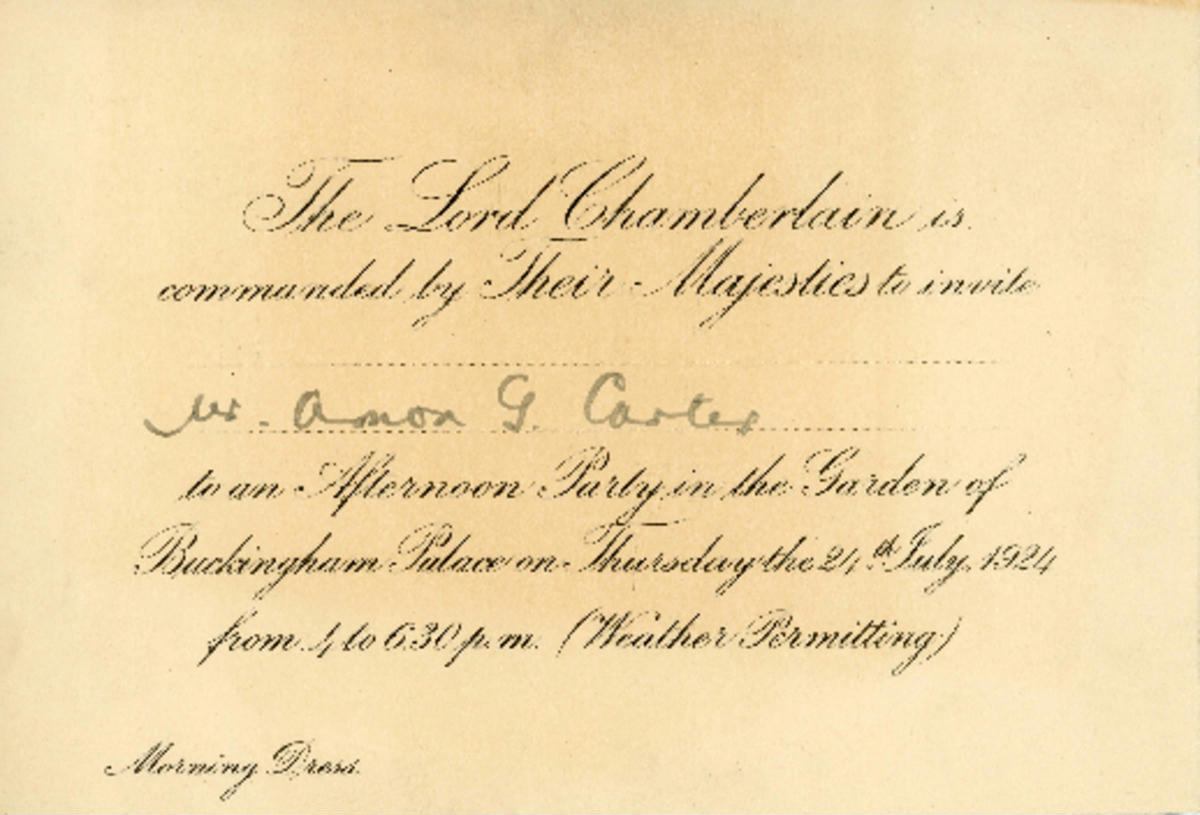 The Lord Chamberlain is
commanded by Their Majesties to invite
Mr. Amon G. Carter
to an Afternoon Party in the Garden of
Buckingham Palace on Thursday the 24th July, 1924
from 4 to 6.30 p.m. (Weather Permitting)
Morning Dress.